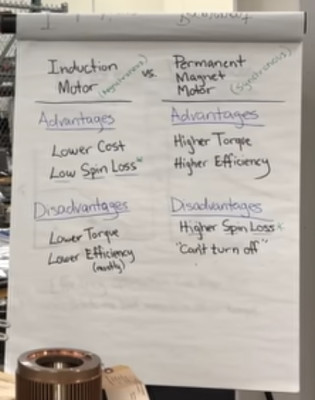 Induction Motor (Asynchronous)
vs.
Permanent Magnet Motor (Synchronous)
Advantages
Lower Cost
Low Spin Loss*
Advantages
Higher Torque
Higher Efficiency
Disadvantages
Lower Torque
Lower Efficiency
(mostly)
Disadvantages
Higher Spin Loss*
"Can't turn off"